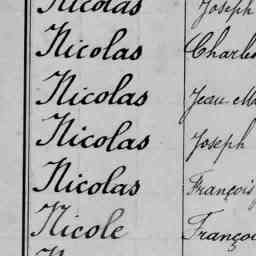 Nicolas Joseph
Nicolas
Nicolas Jean
Nicolas Joseph
Nicolas François
Nicole